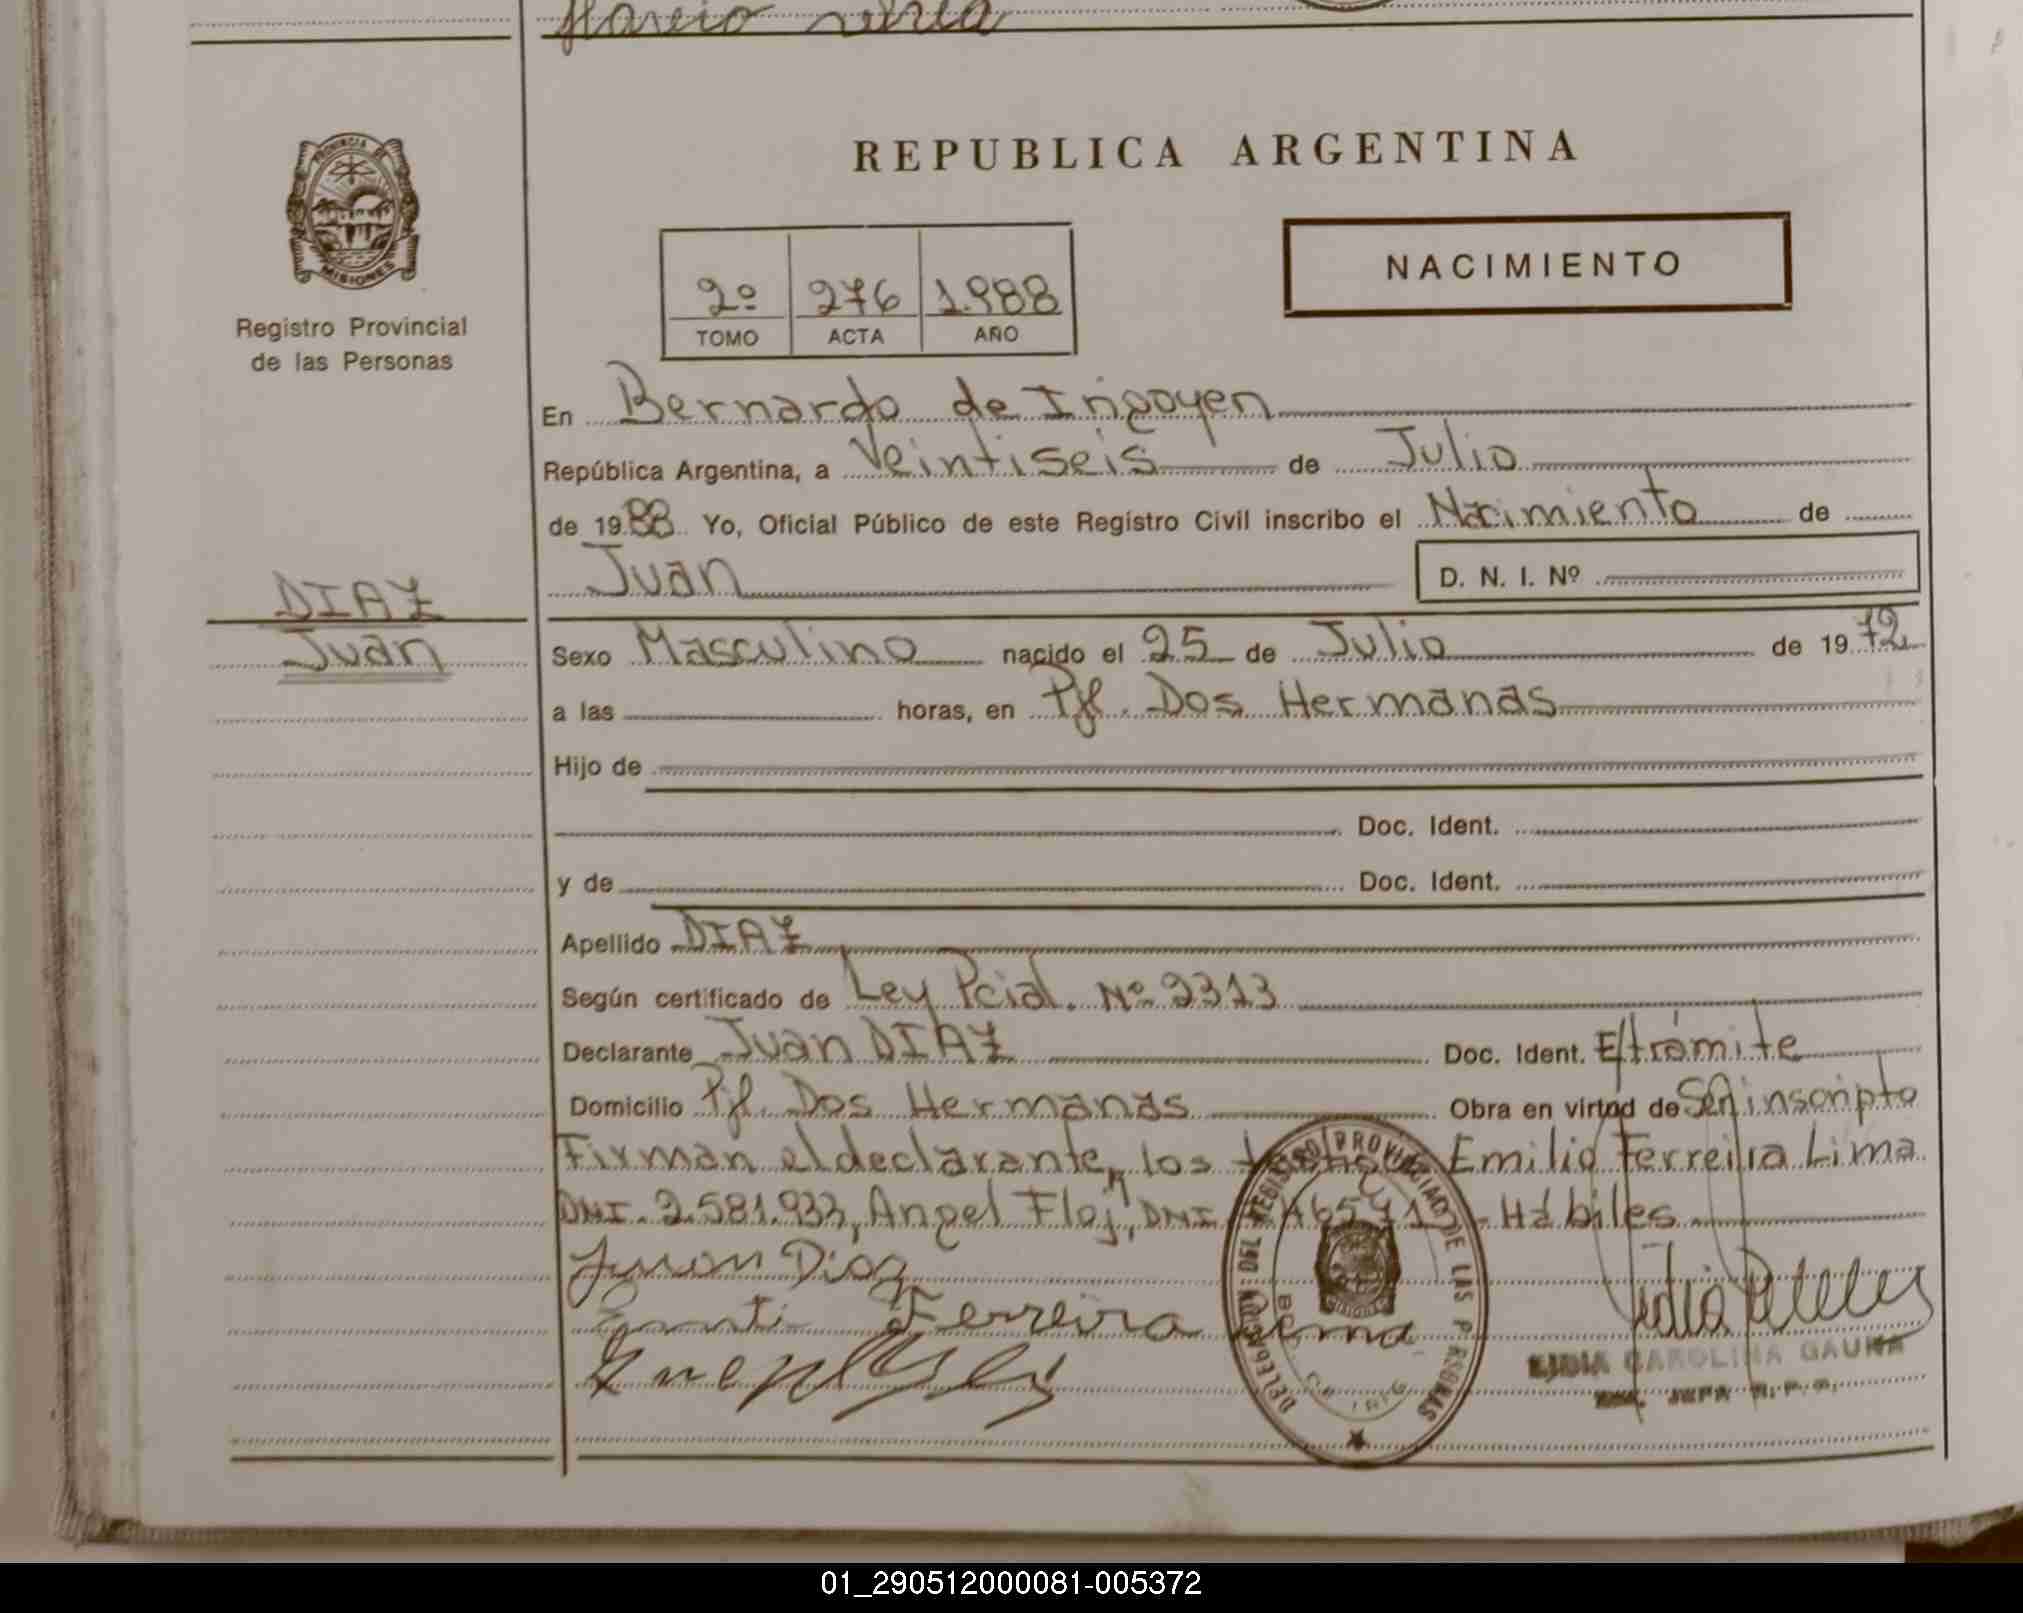 PROVINCIA DE
MISIONES
Registro Provincial
de las Personas
REPUBLICA ARGENTINA
2º 276 1.988
TOMO ACTA AÑO
NACIMIENTO
En Bernardo de Irigoyen
República Argentina, a Veintiseis de Julio
de 1988 Yo, Oficial Público de este Registro Civil inscribo el Nacimiento de
Juan D. N. I. Nº
DIAZ
Juan
Sexo Masculino nacido el 25 de Julio de 1972
a las horas, en Pje. Dos Hermanas
Hijo de
Doc. Ident.
y de Doc. Ident.
Apellido DIAZ
Según certificado de Ley Pcial. Nº 2313
Declarante Juan DIAZ Doc. Ident. E/trámite
Domicilio Pje. Dos Hermanas Obra en virtud de Ser inscripto
Firman el declarante, los testigos Emilio Ferreira Lima
DNI. 2.581.933, Angel Floj, DNI - Hábiles
Juan Diaz
Ferreira Lima
DELEGACION DEL REGISTRO PROVINCIAL DE LAS PERSONAS
LIDIA CAROLINA GAUNA
JEFA R. P. P.
01_290512000081-005372